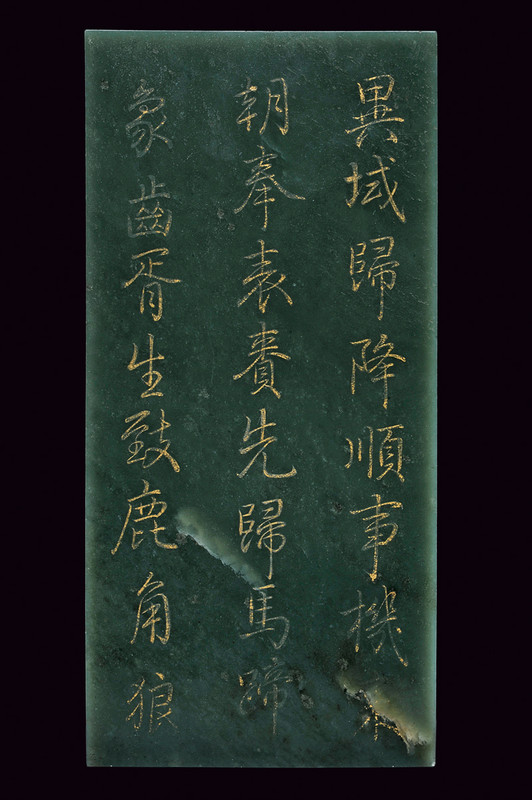 異域歸降順事機来
朝奉表賚先歸馬蹄
象齒胥生致鹿角狼